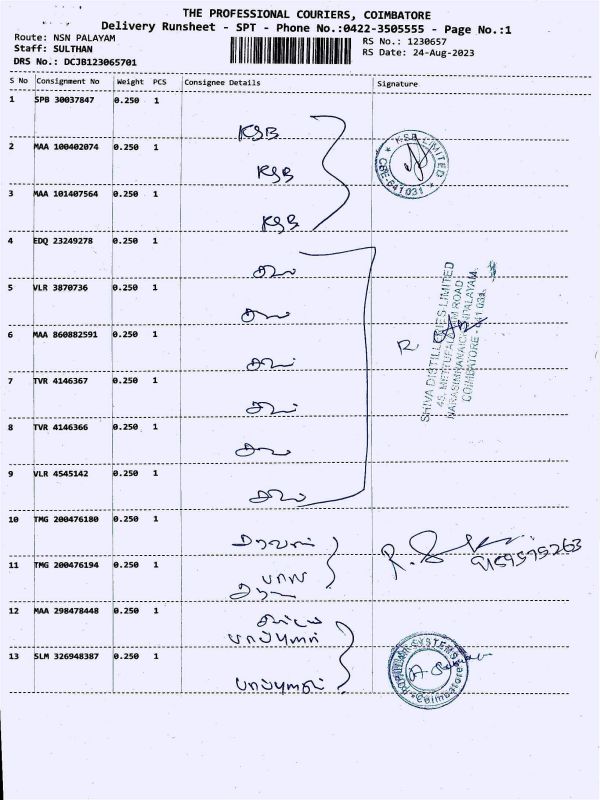 THE PROFESSIONAL COURIERS, COIMBATORE
Delivery Runsheet - SPT - Phone No.:0422-3505555 - Page No.:1
Route: NSN PALAYAM
Staff: SULTHAN
DRS No.: DCJB123065701
RS No.: 1230657
RS Date: 24-Aug-2023
S No Consignment No Weight PCS Consignee Details Signature
1 SPB 30037847 0.250 1
KSB
2 MAA 100402074 0.250 1
KSB
KSB LIMITED
CBE-641031
3 MAA 101407564 0.250 1
KSB
4 EDQ 23249278 0.250 1
சிவா
5 VLR 3870736 0.250 1
சிவா
6 MAA 860882591 0.250 1
சிவா
7 TVR 4146367 0.250 1
சிவா
8 TVR 4146366 0.250 1
சிவா
9 VLR 4545142 0.250 1
சிவா
SHIVA DISTILLERIES LIMITED
45, METTUPALAYAM ROAD,
NARASIMHANAICKENPALAYAM,
COIMBATORE - 641 031.
10 TMG 200476180 0.250 1
11 TMG 200476194 0.250 1
12 MAA 298478448 0.250 1
பாப்புலர்
13 SLM 326948387 0.250 1
பாப்புலர்
POPULAR SYSTEMS
Coimbatore